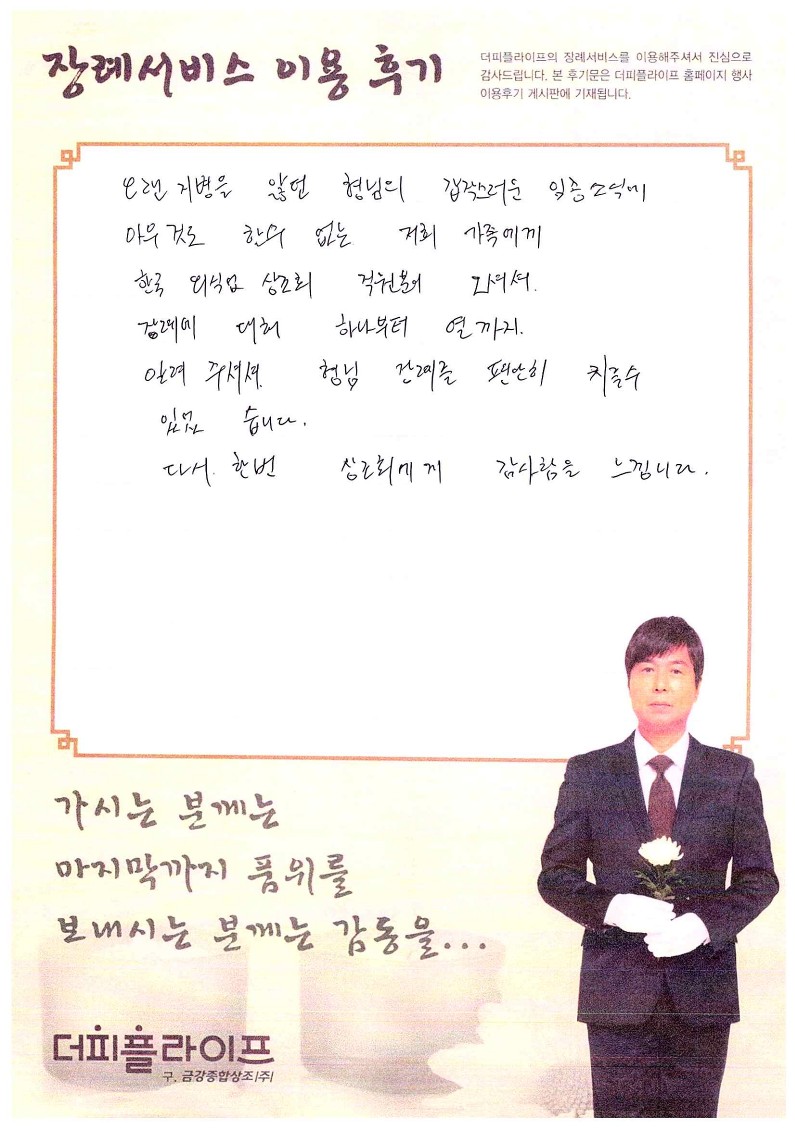 장례서비스 이용 후기
더피플라이프의 장례서비스를 이용해주셔서 진심으로
감사드립니다. 본 후기문은 더피플라이프 홈페이지 행사
이용후기 게시판에 기재됩니다.
오랜 지병을 앓던 형님의 갑작스러운 임종소식에
아무것도 할수 없는 저희 가족에게
한국 외식업 상조회 직원분이 오셔서.
장례에 대해 하나부터 열까지.
알려 주셔서. 형님 장례를 편안히 치를수
있었 습니다.
다시. 한번 상조회에게 감사함을 느낍니다.
가시는 분께는
마지막까지 품위를
보내시는 분께는 감동을...
더피플라이프
구. 금강종합상조(주)